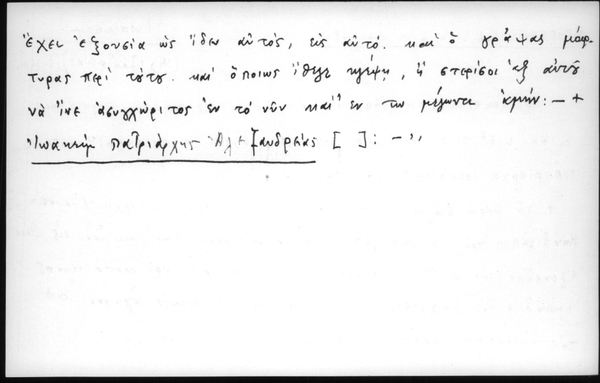 ἔχει ἐξουσία ὡς ἴδεν αὐτὸς, εἰς αὐτό. καὶ ὁ γράψας μάρ-
τυρας περὶ τούτου. καὶ ὅποιως ἤθελε κλέψη, ἢ στερίσοι ἐξ αὐτοῦ
νὰ ἦνε ἀσυγχώριτος ἐν τὸ νῦν καὶ ἐν τω μέλωντι ἀμήν: — +
Ἰωακεὶμ Πατριάρχης Ἀλεξανδρείας [ ]: —,,